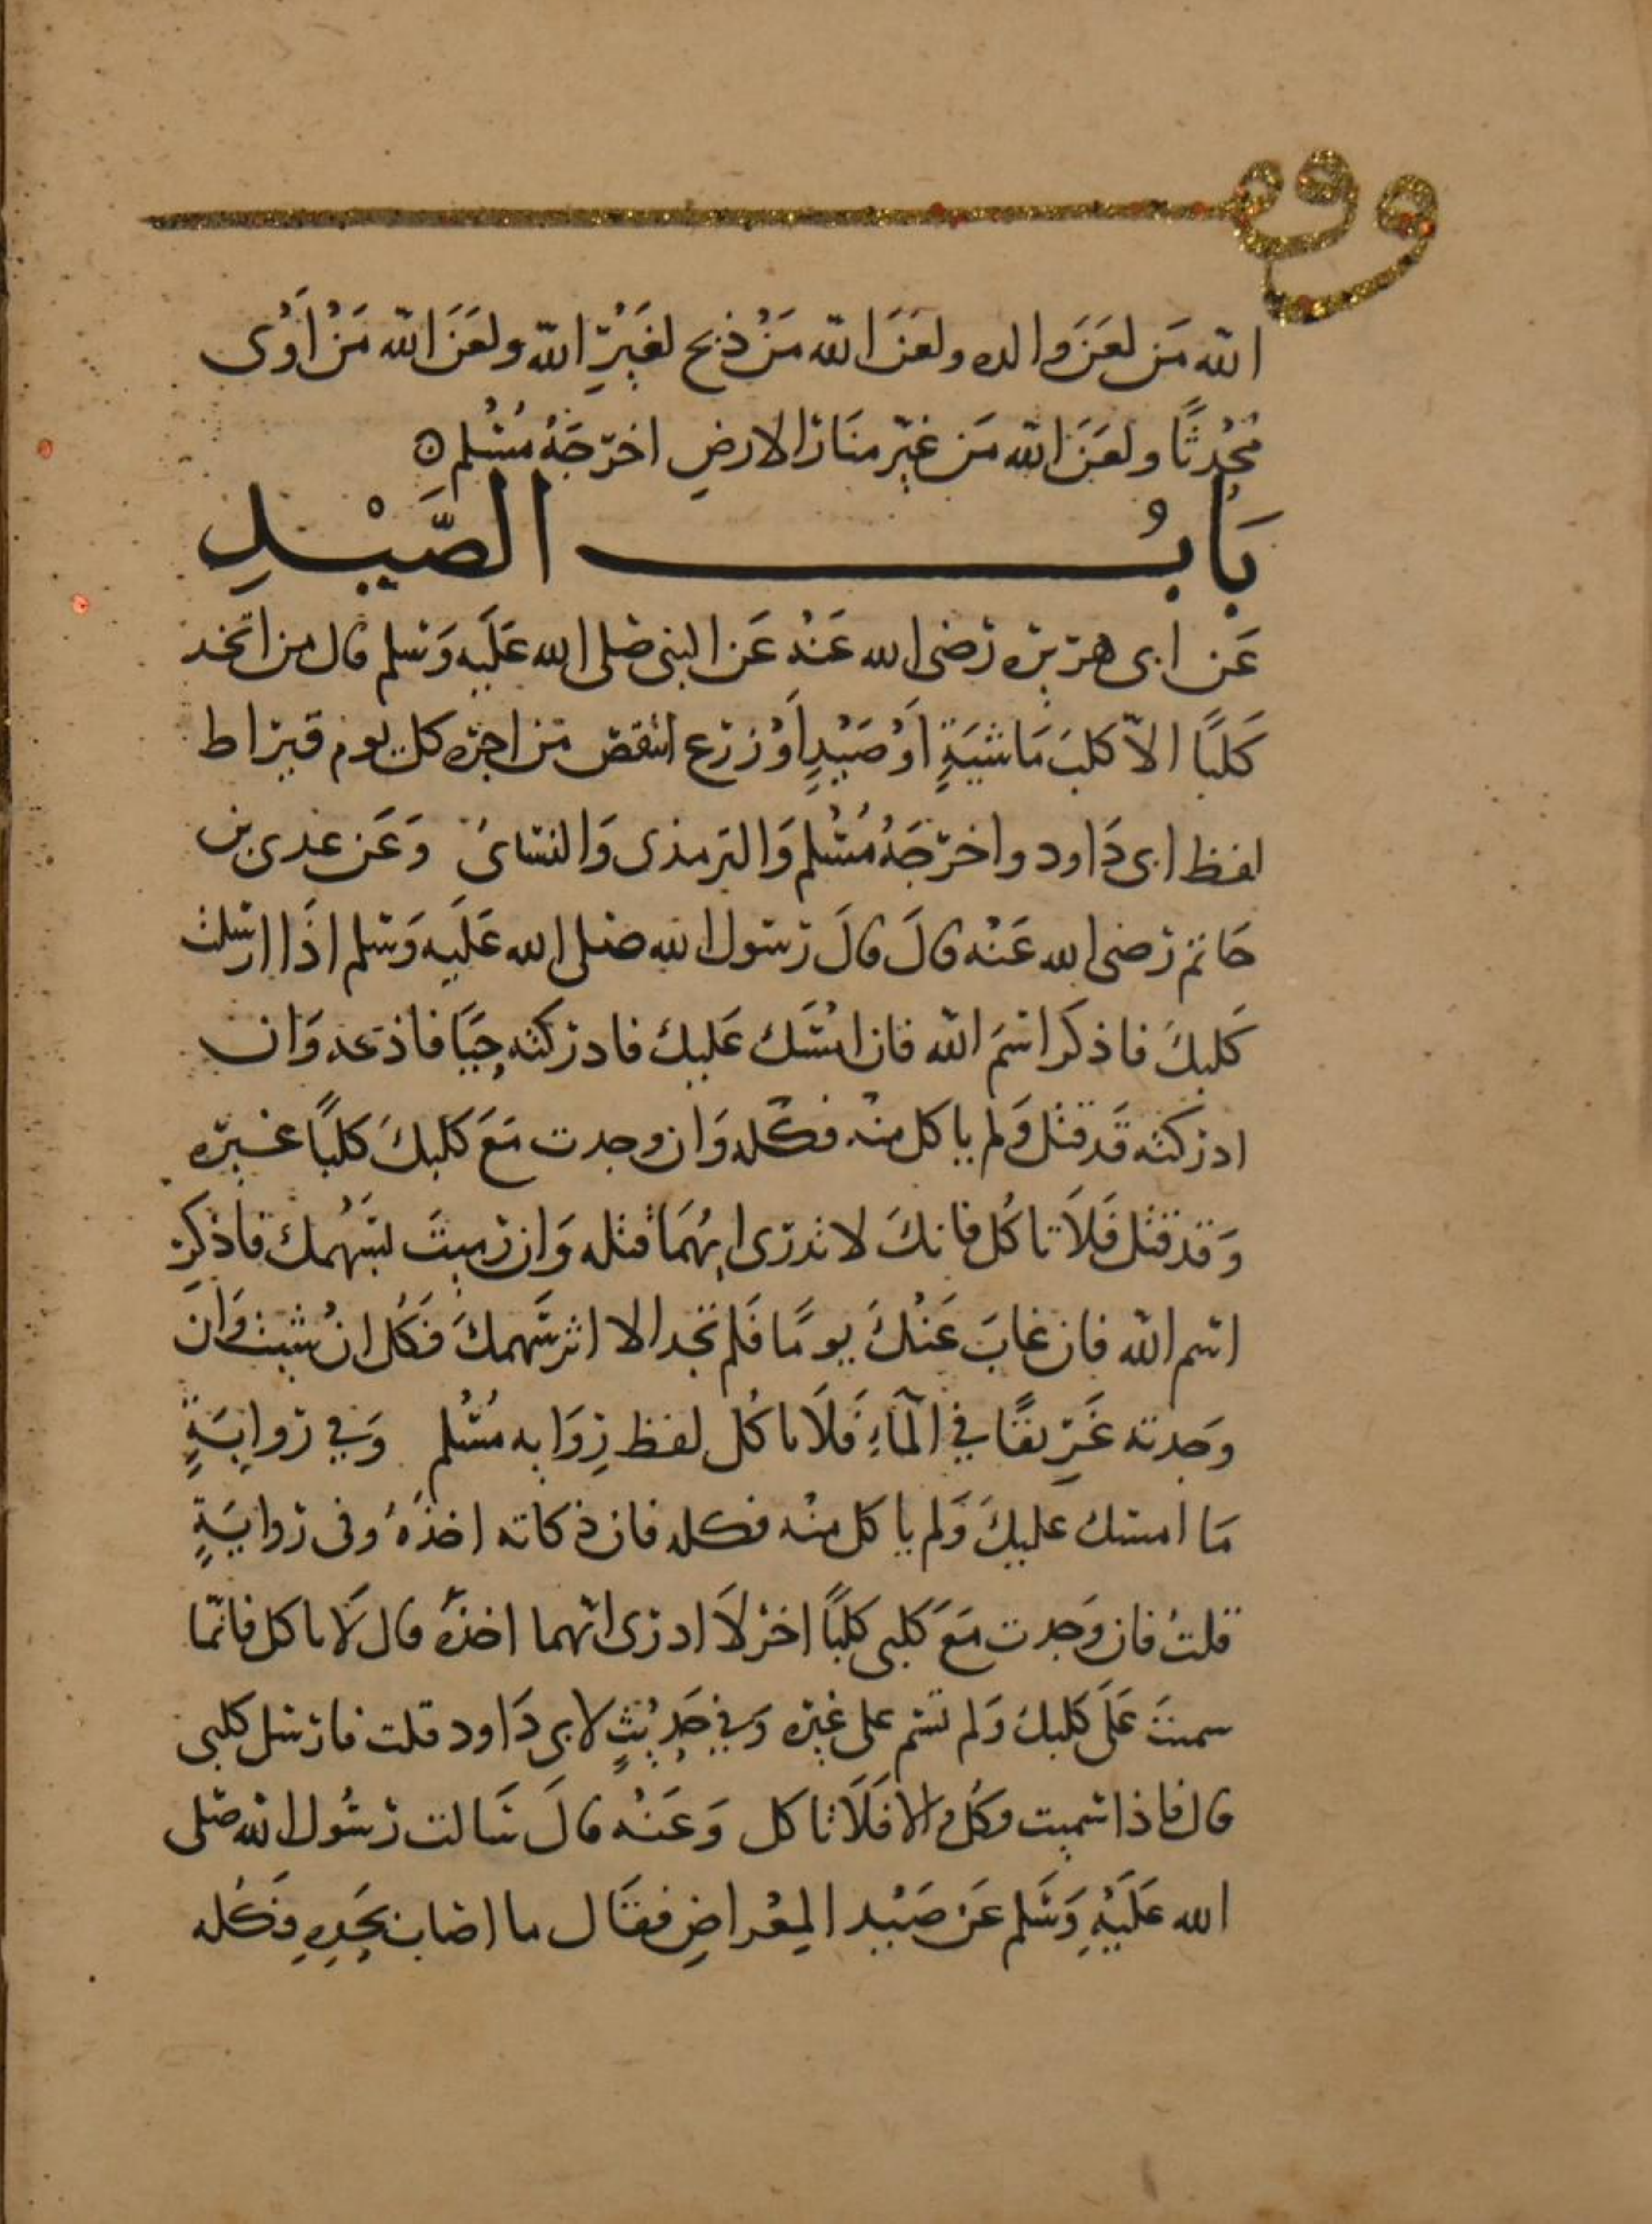 وقف
الله مَن لعَنَ والده ولعَنَ الله مَنْ ذبح لغَيْرِ الله ولعَنَ الله مَنْ اَوْى
مُحْدِثًا ولعَنَ الله مَن غيّر منَار الارضِ اخرّجَهُ مُسْلم
بَابُ الصَّيْدِ
عَن ابى هريره رضى الله عَنْه عَن النبى صلى الله عَلَيه وَسلم قال من اتخد
كَلبًا الاّ كلبَ مَاشيَةٍ اَوْ صَيْدٍ اَوْ زرع انتقص من اجره كل يوم قيراط
لفظ ابى دَاود واخرّجَهُ مُسْلم وَالترمذى وَالنسَائىُ وَعَن عدى بن
حَاتم رضى الله عَنْه قالَ قالَ رسَول الله صلى الله عَلَيه وَسلم اذَا ارسلت
كَلبكَ فاذكر اسْمَ الله فان امْسَك عَليك فادركته حِيَّا فاذبحه وَان
ادركته قَد قتل وَلم ياكل منه فكله وَان وجدت مَعَ كلبكَ كلبًا غيره
وَقد قتل فَلاَ تاكُل فانكَ لا تدرى ايهُمَا قتله وَان رميتَ بسَهْمك فاذكر
اسم الله فان غابَ عَنْكَ يومًا فَلم تجد الا اثر سَهمكَ فَكُل انْ شيت وَان
وَجدته غَرِيقًا في المَآءِ فَلاَ تاكُل لفظ رِوَايه مُسْلم وَفي روايَةٍ
مَا امسك عليكَ وَلم ياكل منْه فكله فان ذكاته اخذَهُ وفى روايَةٍ
قلتُ فان وَجدت مَعَ كلبى كلبًا اخرَ لاَ ادرى ايّهما اخذَهُ قال لاَ تاكل فانّما
سميتَ عَلَى كلبكَ وَلم تسَم على غيره وَفي حَدِيْثٍ لابى دَاود قلت فارسل كلبى
قال فاذا سَميت فكُل والا فَلاَ تاكل وَعَنْه قالَ سَالت رسُول الله صلى
الله عَلَيْهِ وَسَلم عَن صَيْد المِعْراضِ فقَال ما اصَاب بحَدِهِ فَكُله